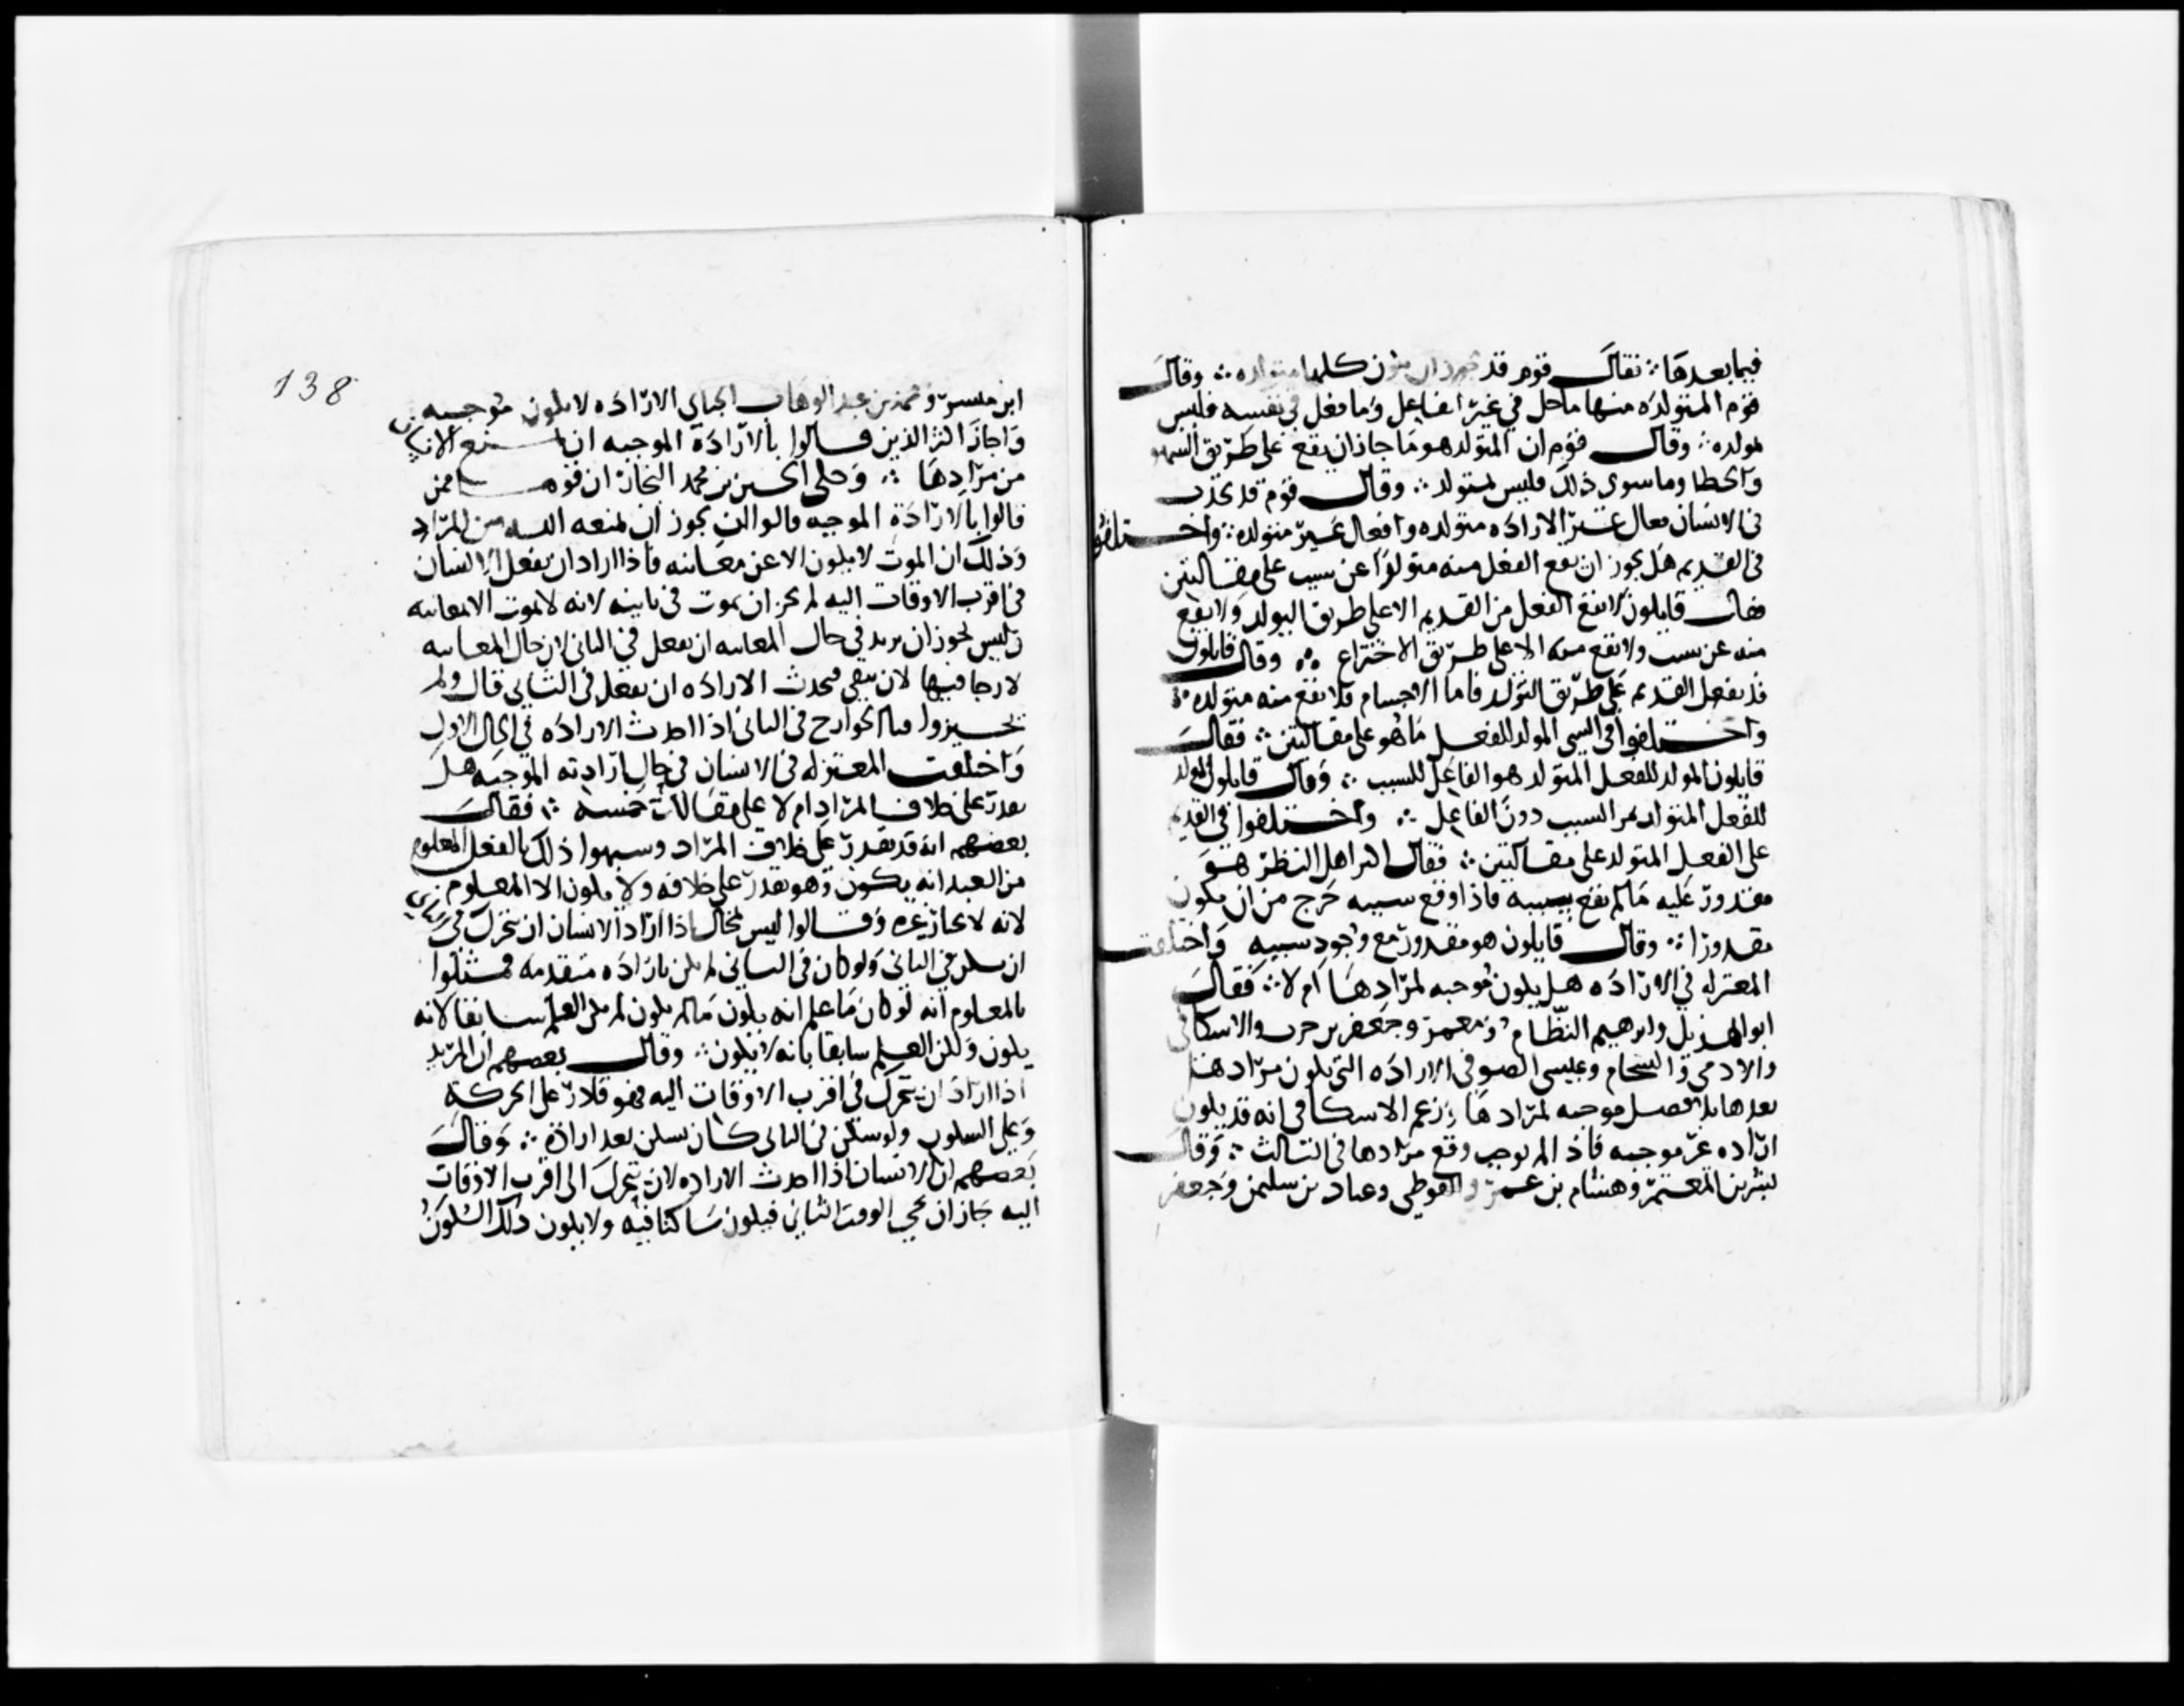 فيما بعدها ∴ فقال قوم قد يجوز ان يكون كلها متولده ∴ وقال
قوم المتولده منها ما حل في غير الفاعل وما فعل في نفسه فليس
بمولده ∴ وقال قوم ان المتولد هو ما جاز ان يقع على طريق السهو
والخطا وما سوى ذلك فليس بمتولد ∴ وقال قوم قد يحدث
في الانسان افعال غير الاراده متولده وافعال غير متولده ∴ واختلفوا
في القديم هل يجوز ان يقع الفعل منه متولدا عن سبب على مقالتين
فقال قايلون لا يقع الفعل من القديم الا على طريق التولد ولا يقع
منه عن سبب ولا يقع منه الا على طريق الاختراع ∴ وقال قايلون
قد يفعل القديم على طريق التولد فاما الاجسام فلا تقع منه متولده ∴
واختلفوا في الشي المولد للفعل ما هو على مقالتين ∴ فقال
قايلون المولد للفعل المتولد هو الفاعل للسبب ∴ وقال قايلون المولد
للفعل المتولد هو السبب دون الفاعل ∴ واختلفوا في القدره
على الفعل المتولد على مقالتين ∴ فقال اكثر اهل النظر هو
مقدور عليه ما لم يقع سببه فاذا وقع سببه خرج من ان يكون
مقدورا ∴ وقال قايلون هو مقدور مع وجود سببه واختلفت
المعتزله في الاراده هل يكون موجبه لمرادها ام لا ∴ فقال
ابو الهذيل وابرهيم النظام ومعمر وجعفر بن حرب والاسكافي
والادمي والشحام وعيسى الصوفي الاراده التي يكون مرادها
بعدها بلا فصل موجبه لمرادها وزعم الاسكافي انه قد يكون
اراده غير موجبه فاذا لم توجب وقع مرادها في الثالث ∴ وقال
بشر بن المعتمر وهشام بن عمرو الفوطي وعباد بن سليمن وجعفر
138
ابن مبشر ومحمد بن عبد الوهاب الجباي الاراده لا يكون موجبه
واجاز اكثر الذين قالوا بالارادة الموجبه ان يمنع الانسان
من مرادها ∴ وحكى الحسين بن محمد النجار ان قوما ممن
قالوا بالارادة الموجبه قالوا لن يجوز ان يمنعه الله من المراد
وذلك ان الموت لا يكون الا عن معاينه فاذا اراد ان يفعل الانسان
في اقرب الاوقات اليه لم يجز ان يموت في ثانيه لانه لا يموت الا معاينه
وليس يجوز ان يريد في حال المعاينه ان يفعل في الثاني لان حال المعاينه
لا رجا فيها لان يبقى فيحدث الاراده ان يفعل في الثاني قال ولم
يجيزوا فنا الجوارح في الثاني اذا احدث الاراده في الحال الاول
واختلفت المعتزله في الانسان في حال ارادته الموجبه هل
يقدر على خلاف المراد ام لا على مقالات خمسه ∴ فقال
بعضهم انه قد يقدر على خلاف المراد وشبهوا ذلك بالفعل المعلوم
من العبد انه يكون وهو يقدر على خلافه ولا يكون الا المعلوم
لانه لا يختار غيره وقالوا ليس بمحال اذا اراد الانسان ان يتحرك في الثاني
ان يسكن في الثاني ولو كان في الثاني لم يكن باراده متقدمه فمثلوا
بالمعلوم انه لو كان ما علم انه يكون مما لم يكون لم يكن العلم سابقا لانه
يكون ولكن العلم سابقا بانه لا يكون ∴ وقال بعضهم ان المريد
اذا اراد ان يتحرك في اقرب الاوقات اليه فهو قادر على الحركه
وعلى السكون ولو سكن في الثاني كان يسكن بعد اراده ∴ وقال
بعضهم ان الانسان اذا احدث الاراده لان يتحرك الى اقرب الاوقات
اليه جاز ان يجي الوقت الثاني فيكون ساكنا فيه ولا يكون ذلك السكون